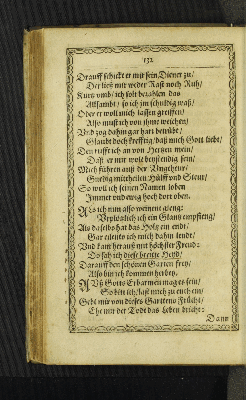 132
Drauff schickt er mit sein Diener zu/
Der ließ mir weder Rast noch Ruh/
Kurtz umb/ ich solt bezahlen das
Allsambt/ so ich im schuldig was/
Oder er woll mich lassen greiffen/
Also must ich von ihme weichen/
Und zog dahin gar hart betrübt/
Glaubt doch krefftig/ daß mich Gott liebt/
Den rufft ich an von Hertzen mein/
Daß er mir wolt beystendig sein/
Mich führen auß den Ungeheur/
Gnedig mittheilen Hülff und Steur/
So wolt ich seinen Namen loben
Immer und ewig hoch dort oben.
Als ich nun also weinent gieng:
Urplötzlich ich ein Glantz empfieng/
Als daselbs hat das Holtz ein endt/
Gar eilents ich mich dahin lendt/
Und kam herauß mit höchster Freud:
Da sah ich diese breite Heyd/
Darauff den schönen Garten frey/
Also bin ich kommen herbey.
Auß Gotts Erbarmen mag es sein/
So bitt ich/ last mich zu euch ein/
Gebt mir von dieses Gartens Frücht/
Ehe mir der Todt das Leben bricht:
Dann